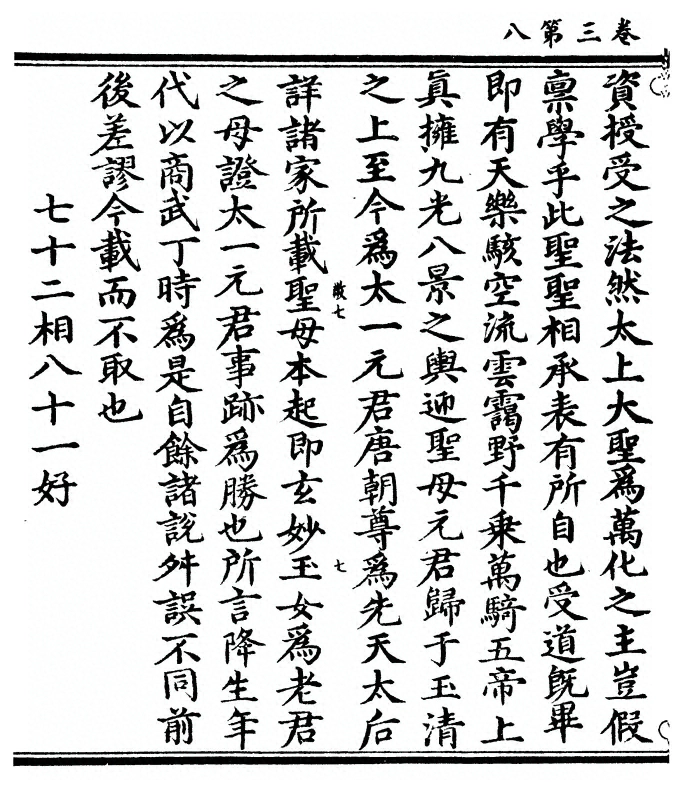 卷三第八
資授受之法然太上大聖爲萬化之主豈假
禀學乎此聖聖相承表有所自也受道旣畢
即有天樂駭空流雲靄野千乗萬騎五帝上
眞擁九光八景之輿迎聖母元君歸于玉清
之上至今爲太一元君唐朝尊爲先天太后
敢七
七
詳諸家所載聖母本起即玄妙玉女爲老君
之母證太一元君事跡爲勝也所言降生年
代以商武丁時爲是自餘諸說舛誤不同前
後差謬今載而不取也
七十二相八十一好